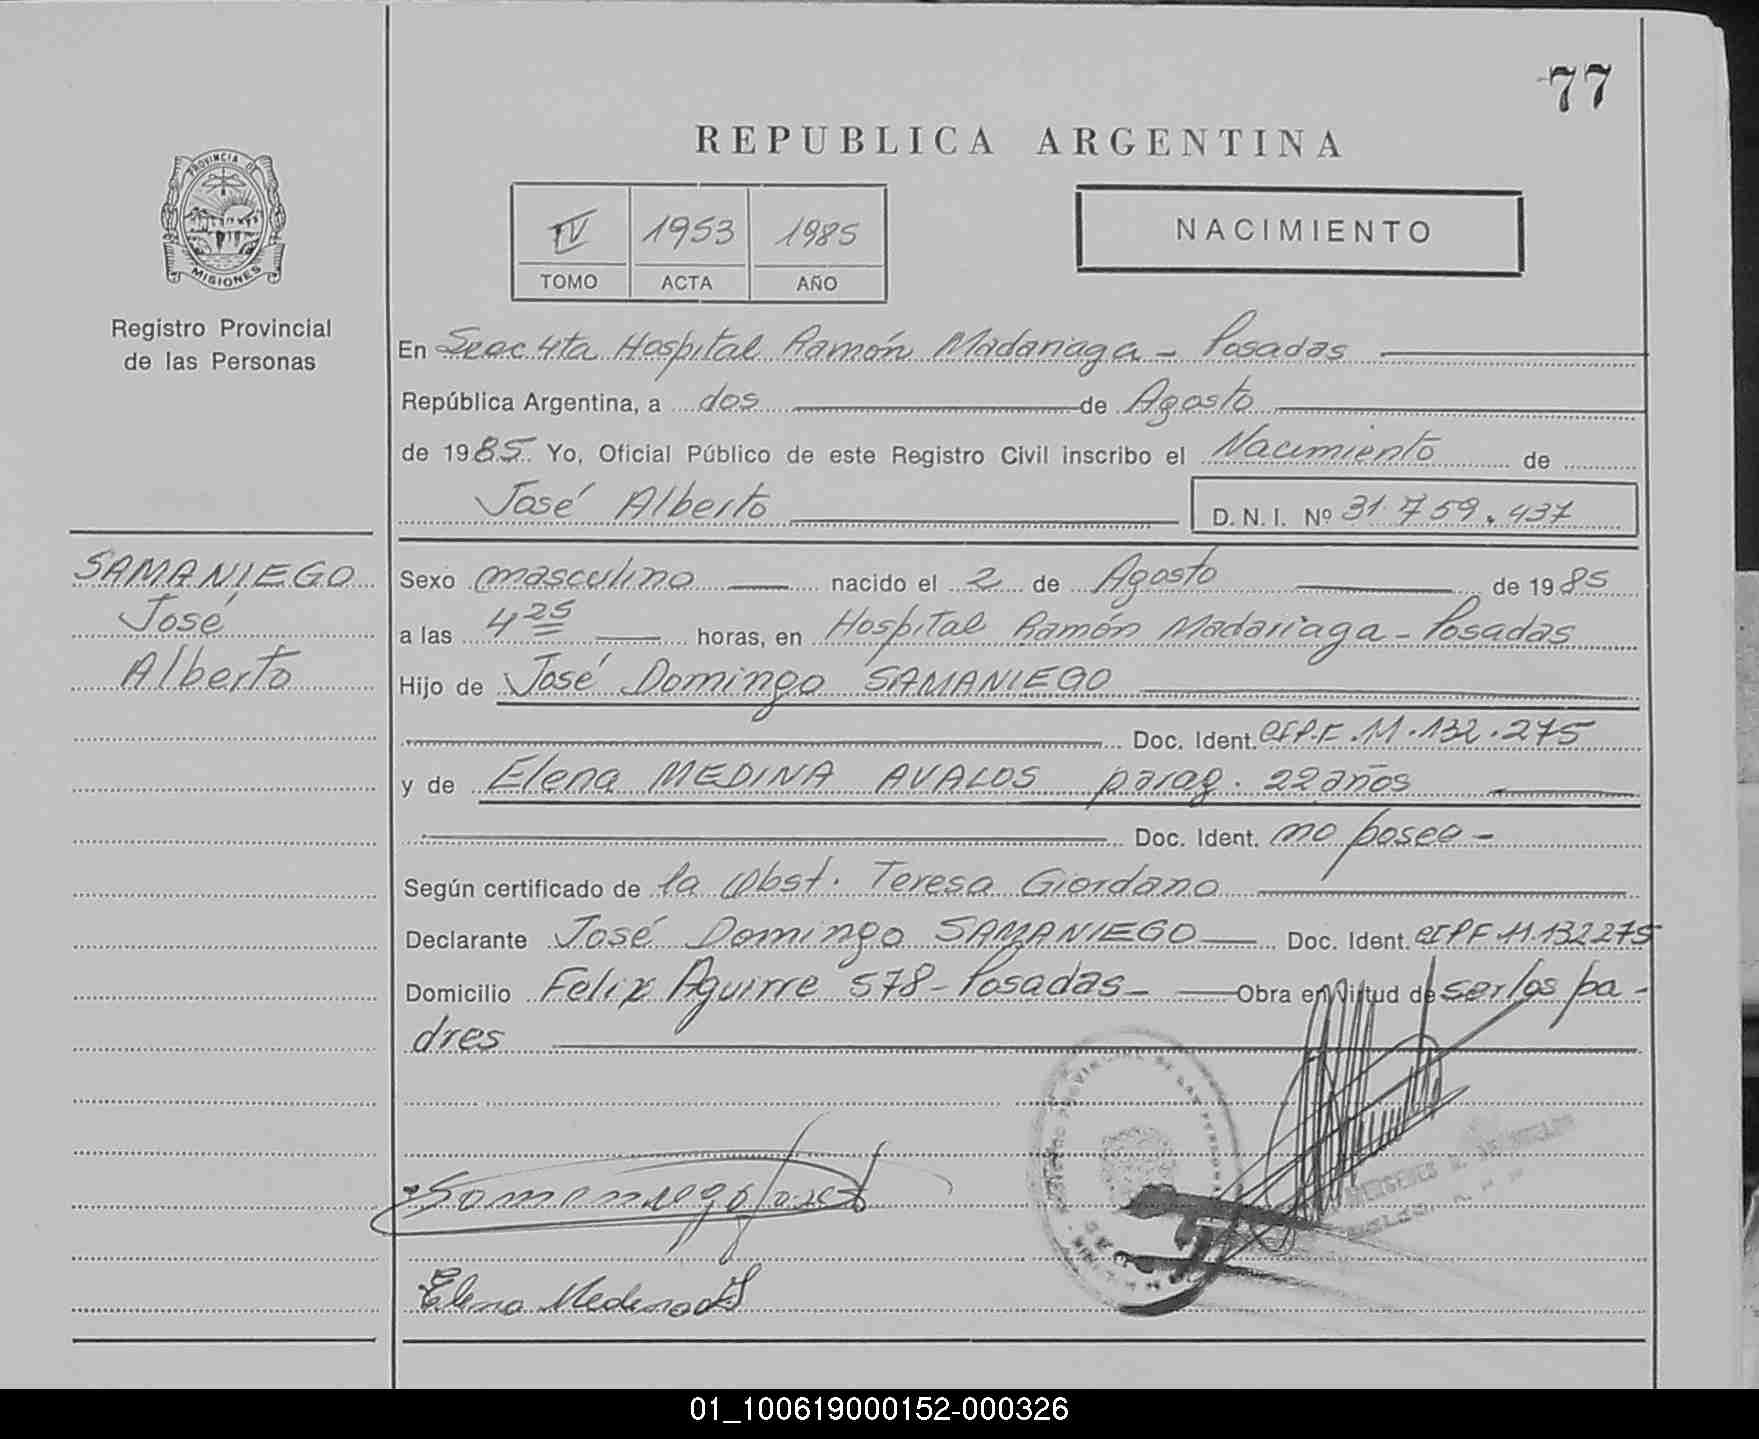 77
REPUBLICA ARGENTINA
PROVINCIA DE
MISIONES
Registro Provincial
de las Personas
IV 1953 1985
TOMO ACTA AÑO
NACIMIENTO
En Secc 4ta Hospital Ramón Madariaga - Posadas
República Argentina, a dos de Agosto
de 1985. Yo, Oficial Público de este Registro Civil inscribo el Nacimiento de
José Alberto D.N.I. Nº 31.759.437
SAMANIEGO
José
Alberto
Sexo masculino nacido el 2 de Agosto de 1985
a las 4 25 horas, en Hospital Ramón Madariaga - Posadas
Hijo de José Domingo SAMANIEGO
Doc. Ident. CIPF. 11.132.275
y de Elena MEDINA AVALOS parag. 22 años
Doc. Ident. no posee -
Según certificado de la Obst. Teresa Giordano
Declarante José Domingo SAMANIEGO Doc. Ident. CIPF 11.132275
Domicilio Felix Aguirre 578 - Posadas - Obra en Virtud de ser los pa-
dres
Samaniego José
Elena Medina
01_100619000152-000326